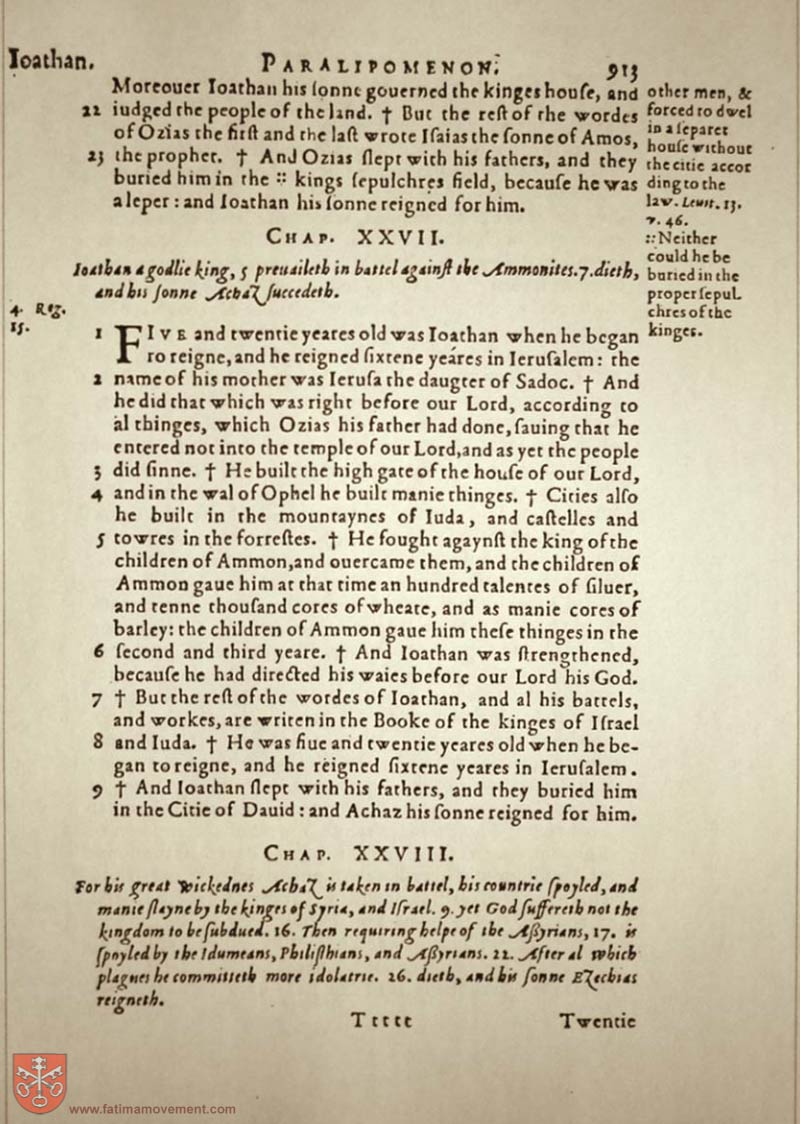 Ioathan. PARALIPOMENON. 913
Moreouer Ioathan his ſonne gouerned the kinges houſe, and
22 iudged the people of the land. † But the reſt of the wordes
of Ozias the firſt and the laſt wrote Iſaias the ſonne of Amos,
23 the prophet. † And Ozias ſlept with his fathers, and they
buried him in the :: kings ſepulchres field, becauſe he was
a leper : and Ioathan his ſonne reigned for him.
other men, &
forced to dwel
in a ſeparet
houſe without
the citie accor
ding to the
law. Leuit. 13.
v. 46.
:: Neither
could he be
buried in the
proper ſepul
chres of the
kinges.
CHAP. XXVII.
Ioathan a godlie king, 5 preuaileth in battel againſt the Ammonites. 7. dieth,
and his ſonne Achaz ſuccedeth.
4. Reg.
15.
1 FIVE and twentie yeares old was Ioathan when he began
to reigne, and he reigned ſixtene yeares in Ieruſalem : the
2 name of his mother was Ieruſa the daugter of Sadoc. † And
he did that which was right before our Lord, according to
al thinges, which Ozias his father had done, ſauing that he
entered not into the temple of our Lord, and as yet the people
3 did ſinne. † He built the high gate of the houſe of our Lord,
4 and in the wal of Ophel he built manie thinges. † Cities alſo
he built in the mountaynes of Iuda, and caſtelles and
5 towres in the forreſtes. † He fought agaynſt the king of the
children of Ammon, and ouercame them, and the children of
Ammon gaue him at that time an hundred talentes of ſiluer,
and tenne thouſand cores of wheate, and as manie cores of
barley: the children of Ammon gaue him theſe thinges in the
6 ſecond and third yeare. † And Ioathan was ſtrengthened,
becauſe he had directed his waies before our Lord his God.
7 † But the reſt of the wordes of Ioathan, and al his battels,
and workes, are writen in the Booke of the kinges of Iſrael
8 and Iuda. † He was fiue and twentie yeares old when he be-
gan to reigne, and he reigned ſixtene yeares in Ieruſalem.
9 † And Ioathan ſlept with his fathers, and they buried him
in the Citie of Dauid : and Achaz his ſonne reigned for him.
CHAP. XXVIII.
For his great wickednes Achaz is taken in battel, his countrie ſpoyled, and
manie ſlayne by the kinges of Syria, and Iſrael. 9. yet God ſuffereth not the
kingdom to be ſubdued. 16. Then requiring helpe of the Aſſyrians, 17. is
ſpoyled by the Idumeans, Philiſthians, and Aſſyrians. 22. After al which
plagues he committeth more idolatrie. 26. dieth, and his ſonne Ezechias
reigneth.
Ttttt Twentie
www.fatimamovement.com